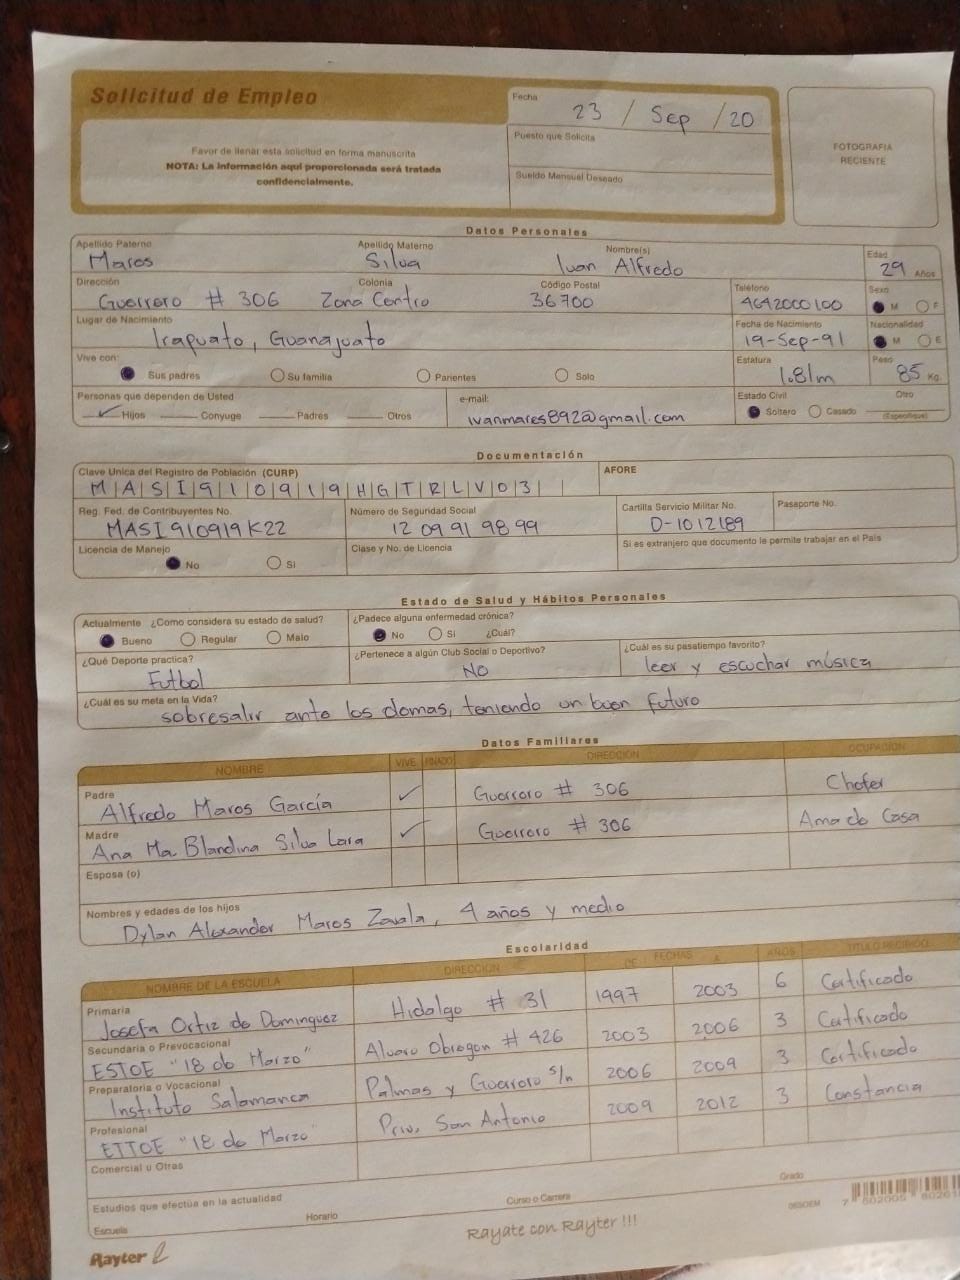 Solicitud de Empleo
Favor de llenar esta solicitud en forma manuscrita
NOTA: La información aquí proporcionada será tratada
confidencialmente.
Fecha
23 / Sep / 20
Puesto que Solicita
Sueldo Mensual Deseado
FOTOGRAFIA
RECIENTE
Datos Personales
Apellido Paterno Apellido Materno Nombre(s) Edad
Mares Silva Ivan Alfredo 29 Años
Dirección Colonia Código Postal Teléfono Sexo
Guerrero # 306 Zona Centro 36700 4642000100 M F
Lugar de Nacimiento Fecha de Nacimiento Nacionalidad
Irapuato, Guanajuato 19-Sep-91 M E
Vive con: Estatura Peso
Sus padres Su familia Parientes Solo 1.81m 85 Kg.
Personas que dependen de Usted e-mail: Estado Civil Otro
Hijos Conyuge Padres Otros ivanmares892@gmail.com Soltero Casado (Especifique)
Documentación
Clave Unica del Registro de Población (CURP) AFORE
MASI910919HGTRLV03
Reg. Fed. de Contribuyentes No. Número de Seguridad Social Cartilla Servicio Militar No. Pasaporte No.
MASI910919K22 12 09 91 98 99 D-1012189
Licencia de Manejo Clase y No. de Licencia Si es extranjero que documento le permite trabajar en el País
No Si
Estado de Salud y Hábitos Personales
Actualmente ¿Como considera su estado de salud? ¿Padece alguna enfermedad crónica?
Bueno Regular Malo No Si ¿Cuál?
¿Qué Deporte practica? ¿Pertenece a algún Club Social o Deportivo? ¿Cuál es su pasatiempo favorito?
Futbol NO leer y escuchar música
¿Cuál es su meta en la Vida?
sobresalir ante los demas, teniendo un buen futuro
Datos Familiares
NOMBRE VIVE FINADO DIRECCIÓN OCUPACIÓN
Padre
Alfredo Mares García Guerrero # 306 Chofer
Madre
Ana Ma. Blandina Silva Lara Guerrero # 306 Ama de Casa
Esposa (o)
Nombres y edades de los hijos
Dylan Alexander Mares Zavala, 4 años y medio
Escolaridad
NOMBRE DE LA ESCUELA DIRECCION DE FECHAS A AÑOS TITULO RECIBIDO
Primaria
Josefa Ortiz de Dominguez Hidalgo # 31 1997 2003 6 Certificado
Secundaria o Prevocacional
ESTOE "18 de Marzo" Alvaro Obregon # 426 2003 2006 3 Certificado
Preparatoria o Vocacional
Instituto Salamanca Palmas y Guerrero s/n 2006 2009 3 Certificado
Profesional
ETTOE "18 de Marzo" Priv. San Antonio 2009 2012 3 Constancia
Comercial u Otras
Estudios que efectúa en la actualidad
Escuela Horario Curso o Carrera Grado
Rayter
Rayate con Rayter !!!